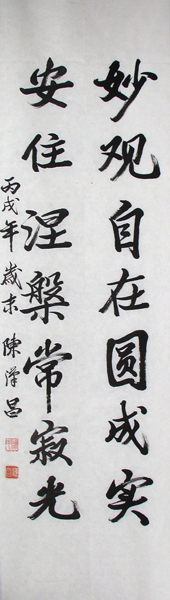 妙观自在圆成实
安住涅槃常寂光
丙戌年岁末 陈泽昌